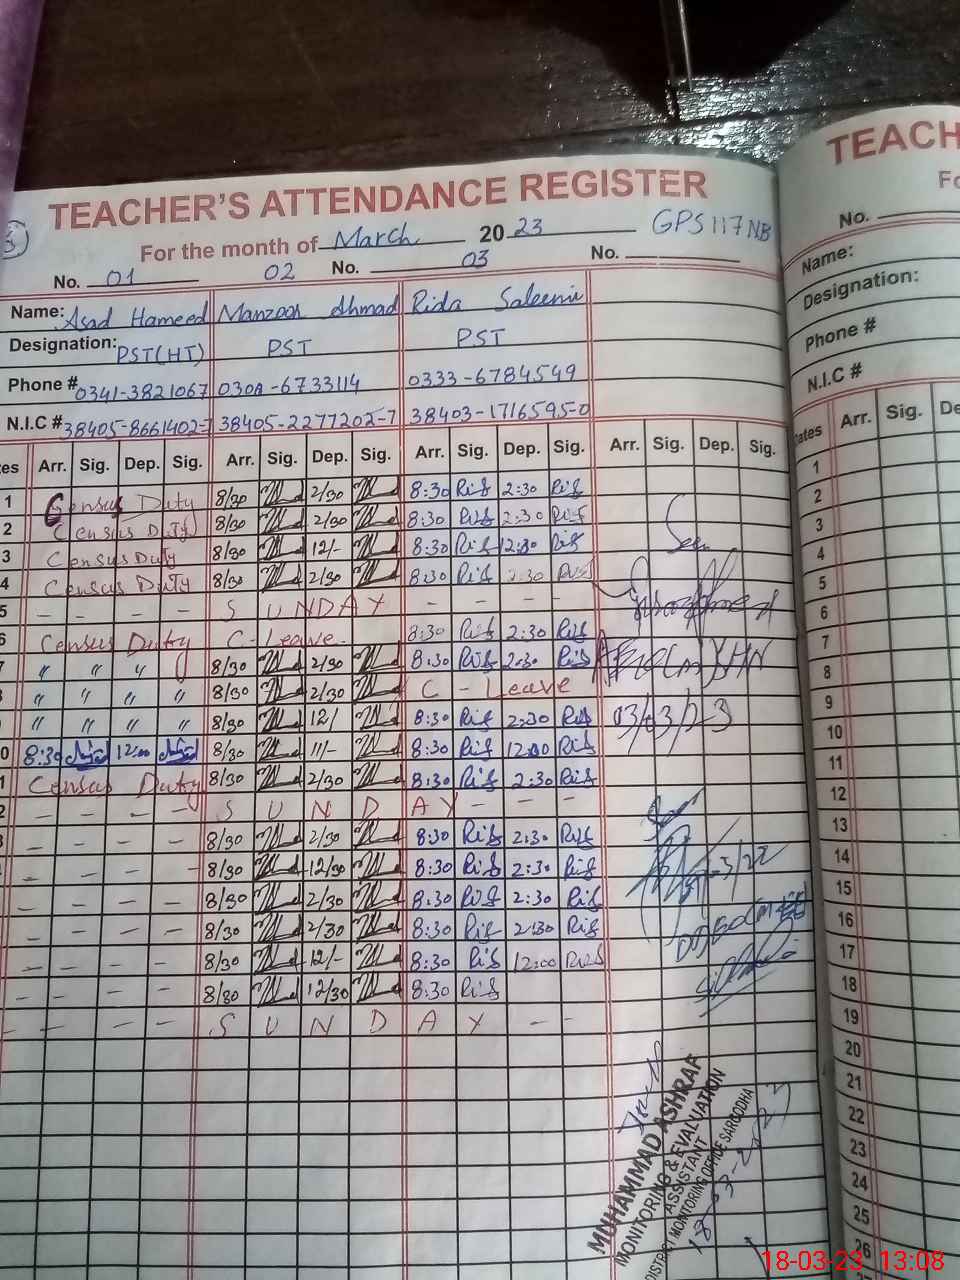 TEACHER'S ATTENDANCE REGISTER
For the month of March 2023 GPS 117 NB
No. 01 02 No. 03 No.
Name: Asad Hameed Manzoor Ahmad Rida Saleemi
Designation: PST(HT) PST PST
Phone # 0341-3821067 0333-6784549
N.I.C # 38405-8661402-7 38405-2277202-7 38403-1716595-0
Arr. Sig. Dep. Sig. Arr. Sig. Dep. Sig. Arr. Sig. Dep. Sig. Arr. Sig. Dep. Sig.
1 Census Duty 8/30 2/30 8:30 2:30
2 Census Duty 8/30 2/30 8:30 2:30
3 Census Duty 8/30 12/- 8:30 12:30
4 Census Duty 8/30 2/30 8:30 2:30
5 - - - - SUNDAY - - - -
6 Census Duty C-Leave 8:30 2:30
7 " " " 8/30 2/30 8:30 2:30
" " " " 8/30 2/30 C-Leave
" " " " 8/30 12/ 8:30 2:30
0 8:30 12:00 8/30 11/- 8:30 12:00
1 Census Duty 8/30 2/30 8:30 2:30
2 - - - - SUNDAY - - -
- - - - 8/30 2/30 8:30 2:30
- - - - 8/30 12/30 8:30 2:30
- - - - 8/30 2/30 8:30 2:30
- - - - 8/30 2/30 8:30 2:30
- - - - 8/30 12/- 8:30 12:00
- - - - 8/30 12/30 8:30
- - - - SUNDAY - -
Seen
03/03/23
MUHAMMAD ASHRAF
MONITORING & EVALUATION
ASSISTANT
DISTRICT MONITORING OFFICE SARGODHA
TEACH
Fo
No.
Name:
Designation:
Phone #
N.I.C #
ates Arr. Sig. De
1
2
3
4
5
6
7
8
9
10
11
12
13
14
15
16
17
18
19
20
21
22
23
24
25
26
18-03-23 13:08